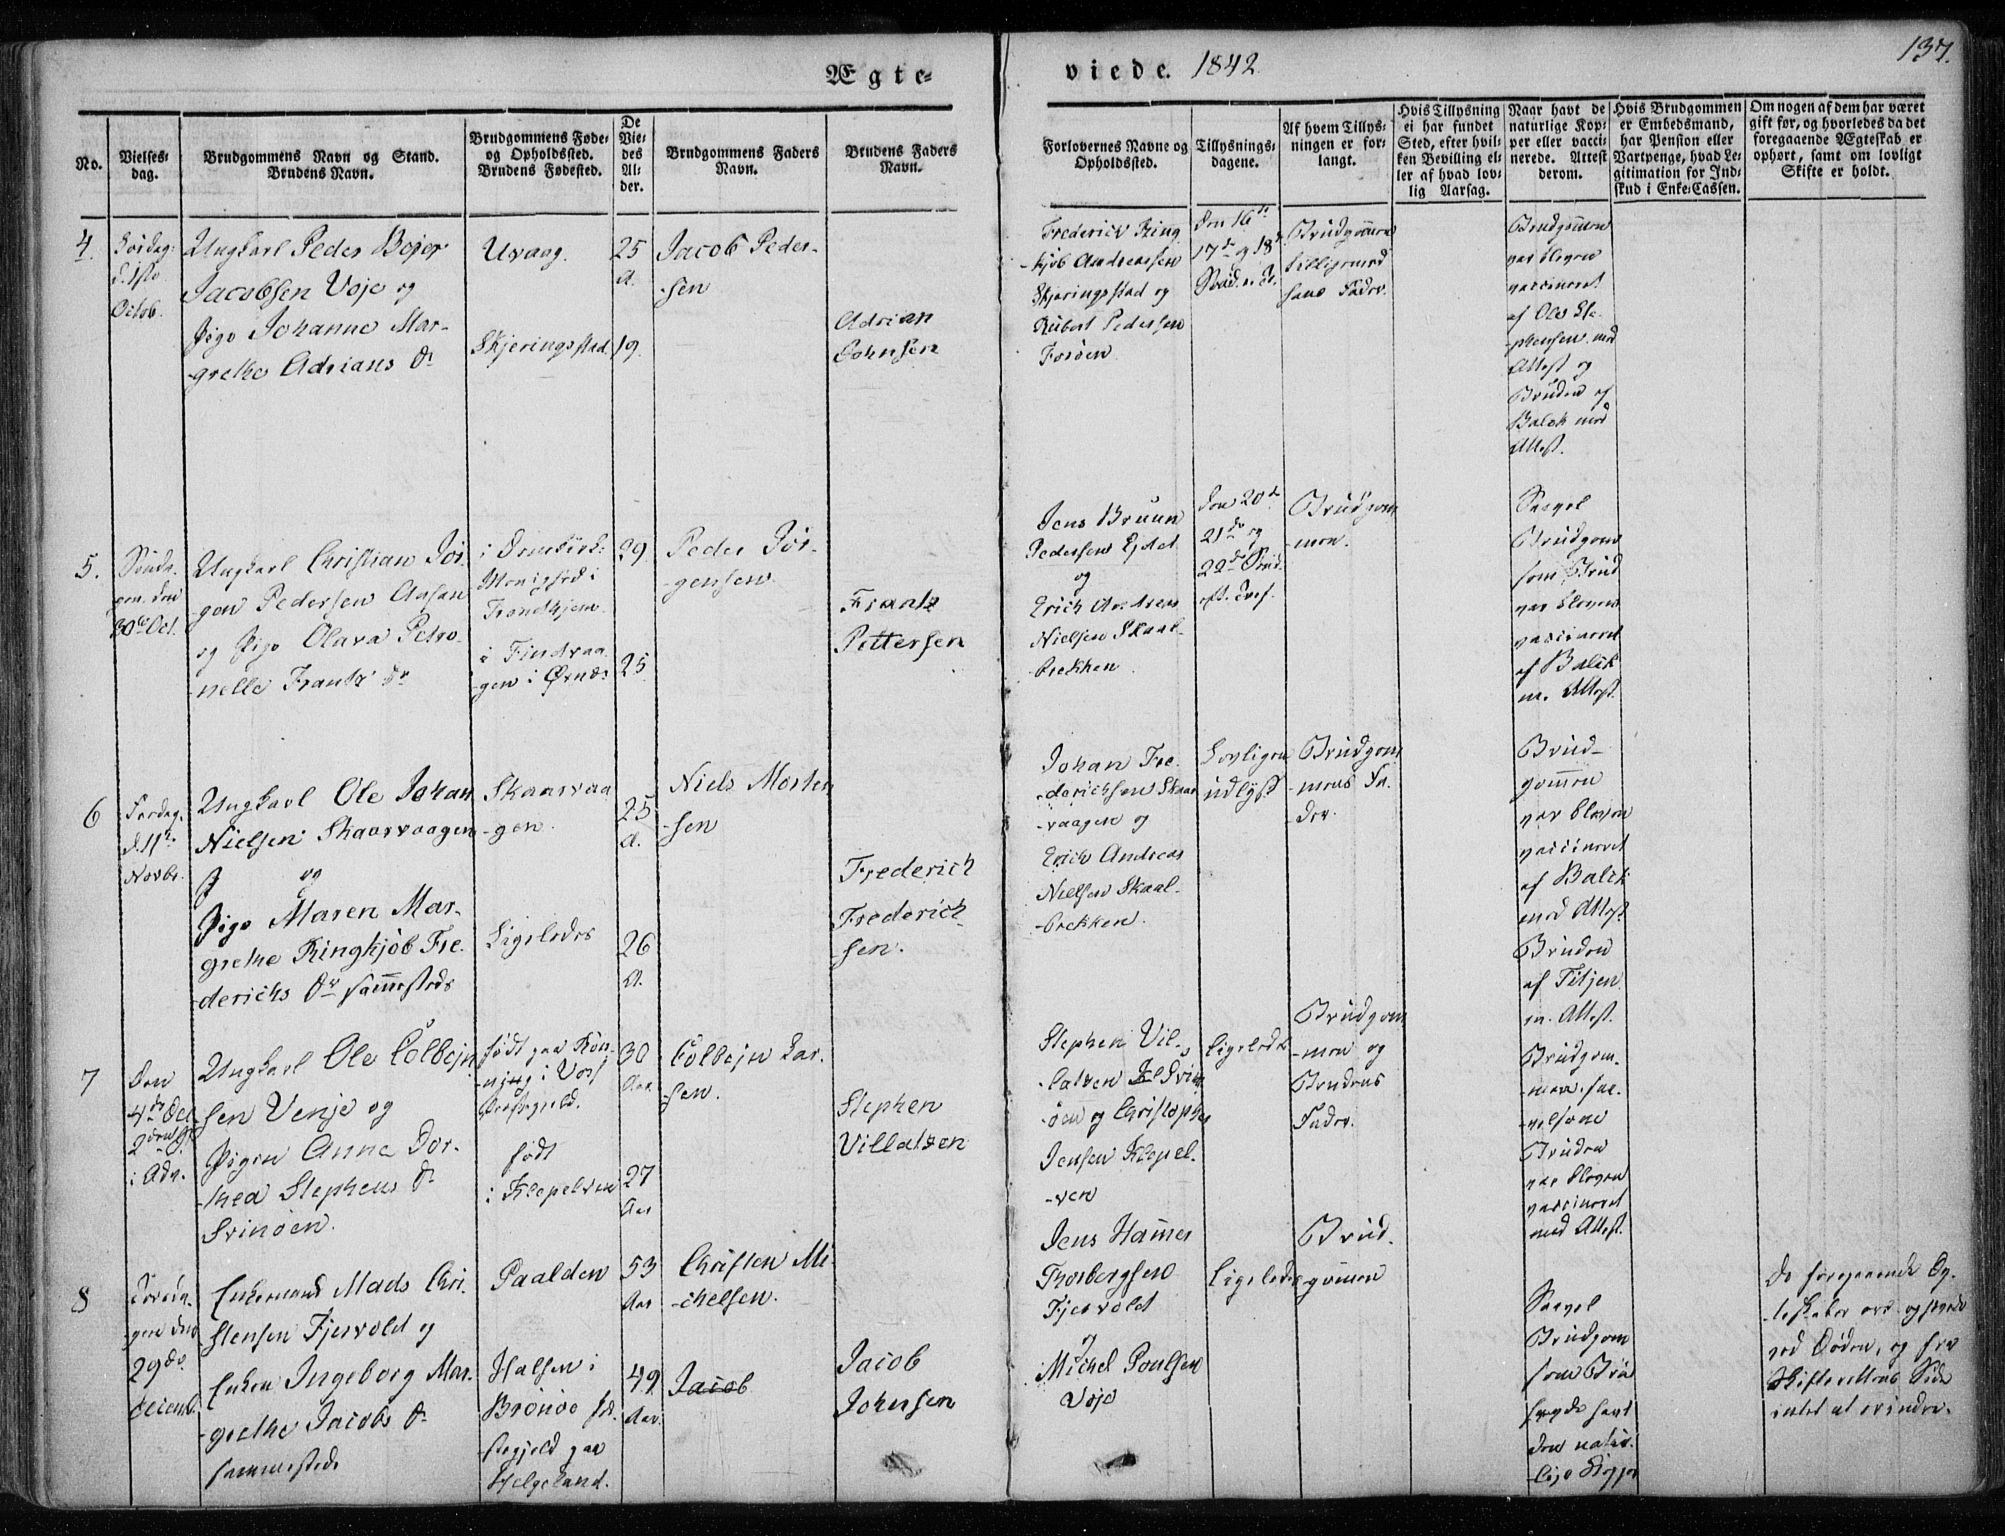 137.
Ægte-
viede. 1842
No.
Vielses-
dag.
Brudgommens Navn og Stand.
Brudens Navn.
Brudgommens Føde-
og Opholdssted.
Brudens Fødested.
De
Vie-
des
Al-
der.
Brudgommens Faders
Navn.
Brudens Faders
Navn.
Forlovernes Navne og
Opholdssted.
Tillysnings-
dagene.
Af hvem Tillys-
ningen er for-
langt.
Hvis Tillysning
ei har fundet
Sted, efter hvil-
ken Bevilling el-
ler af hvad lov-
lig Aarsag.
Naar havt de
naturlige Kop-
per eller vacci-
nerede. Attest
derom.
Hvis Brudgommen
er Embedsmand,
har Pension eller
Vartpenge, hvad Le-
gitimation for Ind-
skud i Enke-Cassen.
Om nogen af dem har været
gift før, og hvorledes da det
foregaaende Ægteskab er
ophørt, samt om lovligt
Skifte er holdt.
4.
Lørdag
d. 1ste
Octob.
Ungkarl Peder Bejer
Jacobsen Voje og
Pige Johanne Mar-
grethe Adrians Dr
Uvaag.
Skjeringsstad
25
A.
19.
Jacob Peder-
sen
Adrian
Johnsen
Frederich Ring
-kjøb Andreassen
Skjeringsstad og
Rubert Pedersen
Forøen
Den 16de
17de og 18de
Brudgommen
tilligemed
hans Fader.
Brudgommen
var bleven
vaccineret
af Ole Ste-
phensen med
Attest og
Bruden af
Balch med
Attest.
5.
Sønda-
gen den
30te Oct.
Ungkarl Christian Jør-
gen Pedersen Aasan
og Pige Olava Petro-
nelle Frantz Dr
i
Trondhjem
i Findvaa
gen i Ørnes
29
25
Peder Jør-
gensen
Frantz
Pettersen
Jens Bruun
Pedersen Ejdet
og
Erich Andreas
Nielsen Skaal-
brekken
Den 20de
21de og
22de
Brudgom-
men.
Saavel
Brudgom
som Brud
var bleven
vaccineret
af Balch
m. Attest.
6
Fredag
d. 11te
Novbr.
Ungkarl Ole Johan
Nielsen Skaarvaagen
og
Pige Maren Mar-
grethe Ringkjøb Fre-
derichs Dr sammesteds
Skaarvaa
-gen.
Ligeledes
25
A.
26
A.
Niels Morten
-sen
Frederich
Frederich-
sen.
Johan Fre-
derichsen Skaar
-vaagen og
Erich Andreas
Nielsen Skaal-
-brekken.
Lovligen
udlyst
Brudgom
-mens Fa-
der.
Brud-
gommen
var bleven
vaccineret
af Balch
med Attest
Bruden
af Tetjen
m. Attest.
7
Den
4de Dec.
2den S.
i Adv.
Ungkarl Ole Colbejn
sen Venje og
Pigen Anne Dor-
thea Stephens Dr
Svinøen.
født paa Røn-
ning i Voss
Præstegjeld.
født
i Klepelven
30
Aar
27
Aar
Colbejn Lar-
sen.
Stephen
Villatzen
Stephen Vil-
latzen Svin
øen og Christopher
Jensen Klepel-
-ven
Ligeledes
Brudgom
-men og
Brudens
Fader.
Brudgom-
men saa-
velsom
Bruden
var bleven
vaccineret
med Attest.
8
Torsda-
gen den
29de
Decemb.
Enkemand Mads Chri-
stensen Fjervold og
Enken Ingeborg Mar-
-grethe Jacobs Dr
sammesteds
Paalden
Halsen i
Brönöe Præ-
stegjeld paa
Helgeland.
53
Aar
49
Aar
Christen Mi-
-chelsen.
Jacob
Jacob
Johnsen
Jens Hammer
Thorbergsen
Fjervold
og
Michel Poulsen
Voje
Ligeledes
Brud-
gommen
Saavel
Brudgom
som Bru
havde havt
den natur-
lige Kopper
De foregaaende Æg-
teskaber ere ophævede
ved Døden, og fra
Skifterettens Side
intet at erindre.